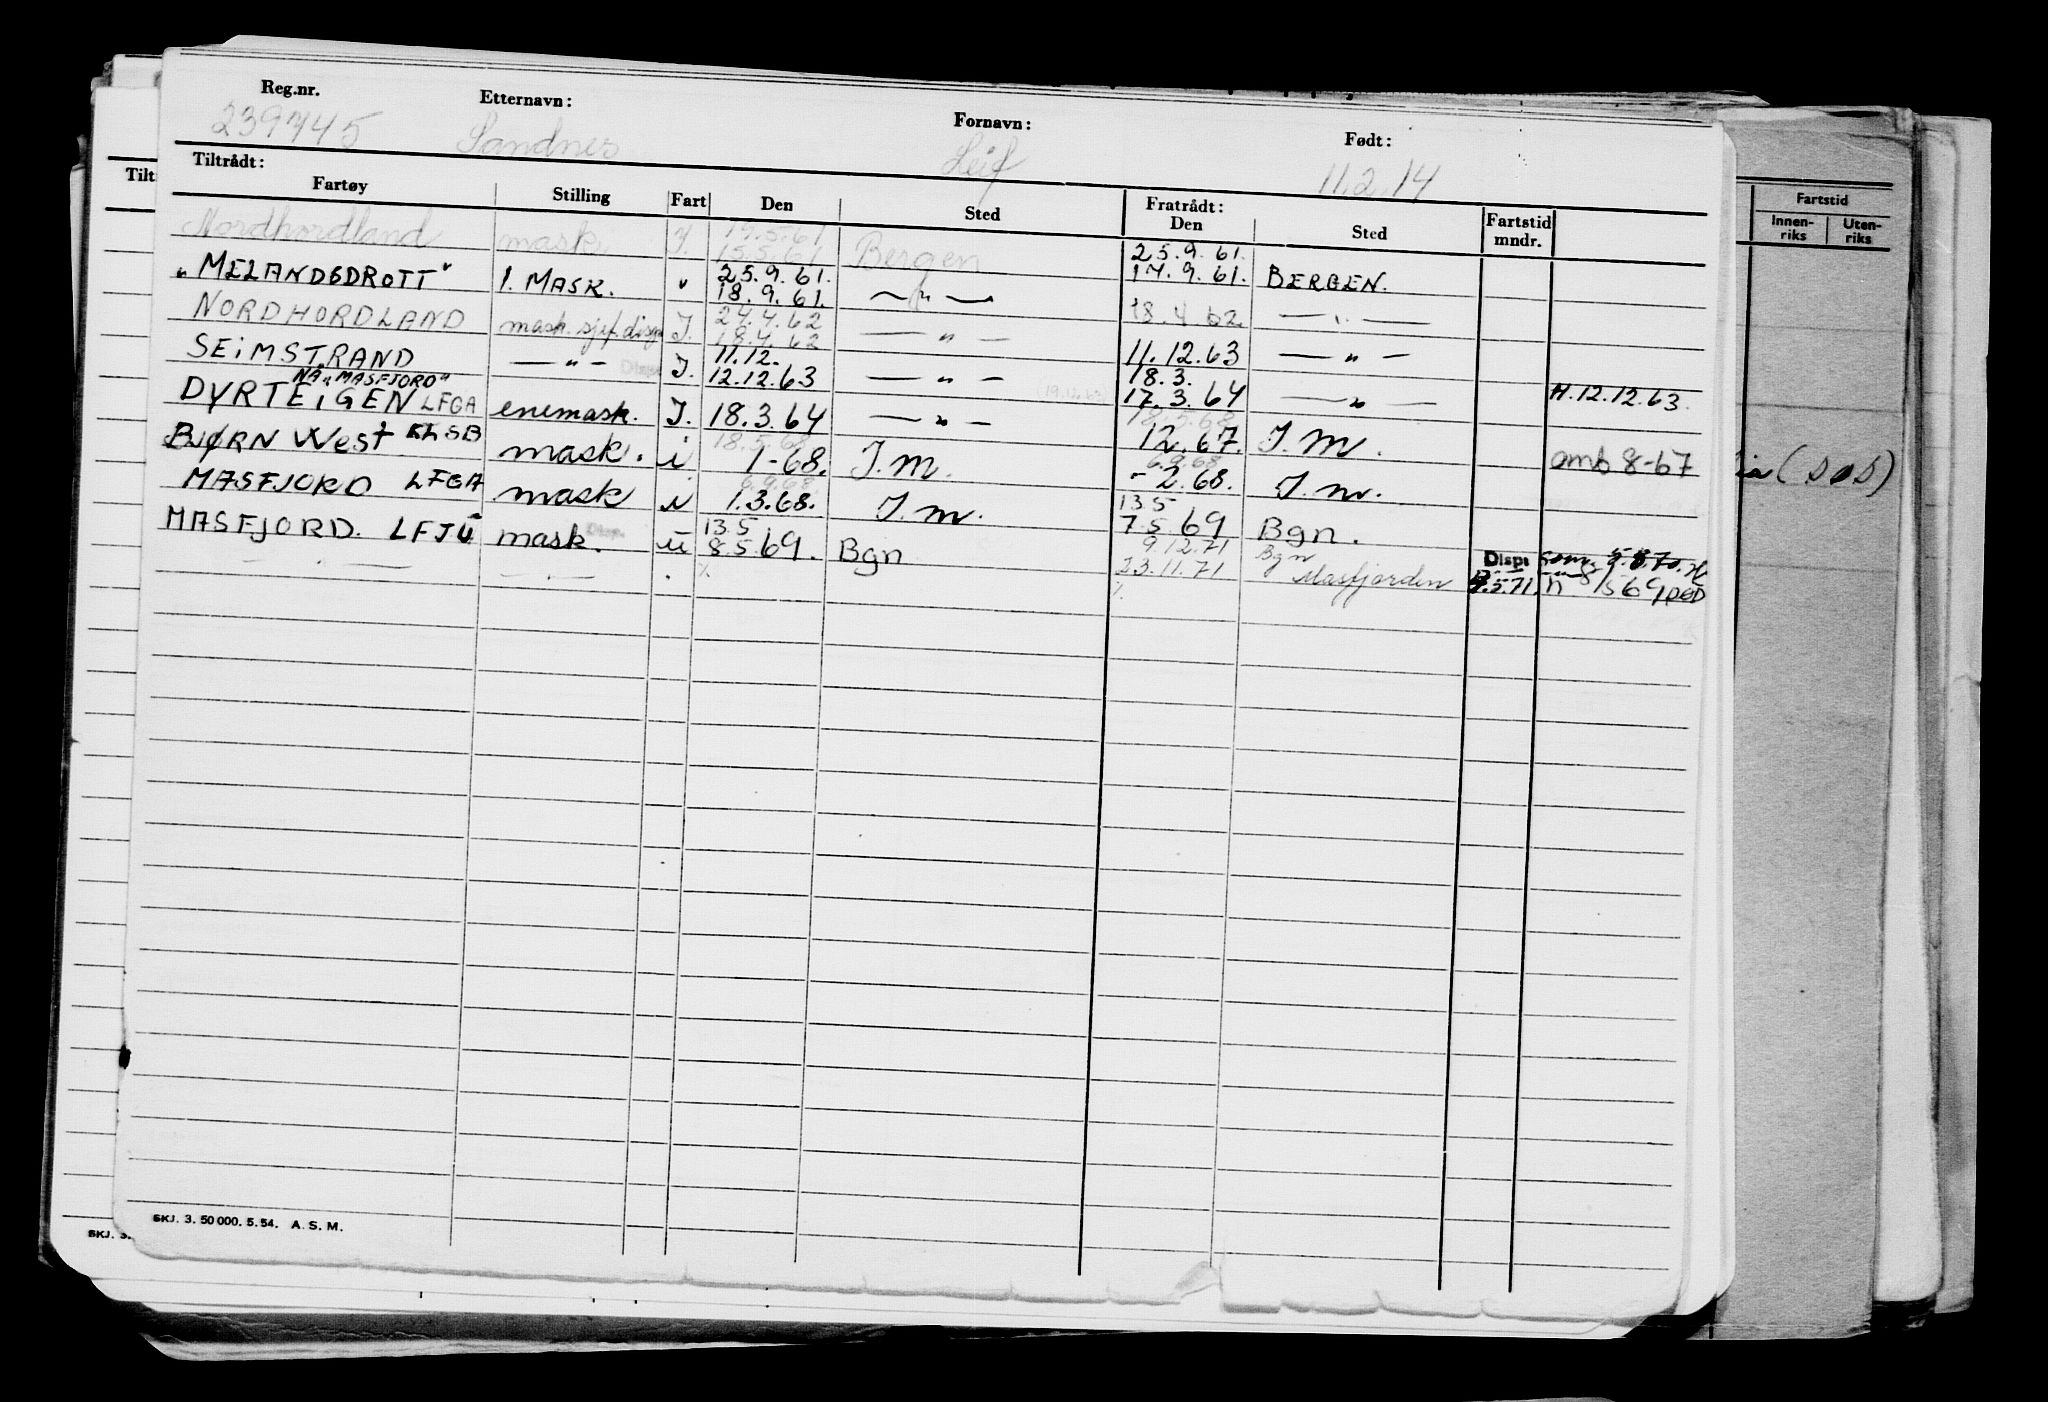 Reg.nr. Etternavn: Fornavn: Født:
239745 Sandnes Leif 11.2.14
Tiltrådt: Fratrådt:
Fartøy Stilling Fart Den Sted Den Sted Fartstid mndr.
Nordhordland mask. I. 15.5.61 Bergen 25.9.61. 17.9.61. BERGEN.
"MELANDSDROTT" 1. MASK. " 25.9.61. 18.9.61. — " — 18.4.62. — " —
NORDHORDLAND mask.sjef disp I. 24.4.62 18.4.62 — " — 11.12.63 — " —
SEIMSTRAND — " — Disp. I. 11.12. 12.12.63 — " — 18.3. 17.3.64 — " — H.12.12.63.
NÅ "MASFJORD"
DYRTEIGEN LFGA enemask. I. 18.3.64 — " — 18.5.68 12.67. I.M. omb 8-67
BJØRN West mask. i 18.5.68 1-68. I.M. 6.9.68 -2.68. I.m.
MASFJORD LFGA mask i 6.9.68 1.3.68. I.m. 13.5 7.5.69 Bgn.
MASFJORD. LFJU mask. Disp. ü 13.5 8.5.69. Bgn 9.12.71 23.11.71 Bgn Masfjorden Disp:
— " — — " —
SKJ. 3. 50 000. 5. 54. A. S. M.
Tilt
SKJ. 3.
Fartstid
Innen-riks Uten-riks